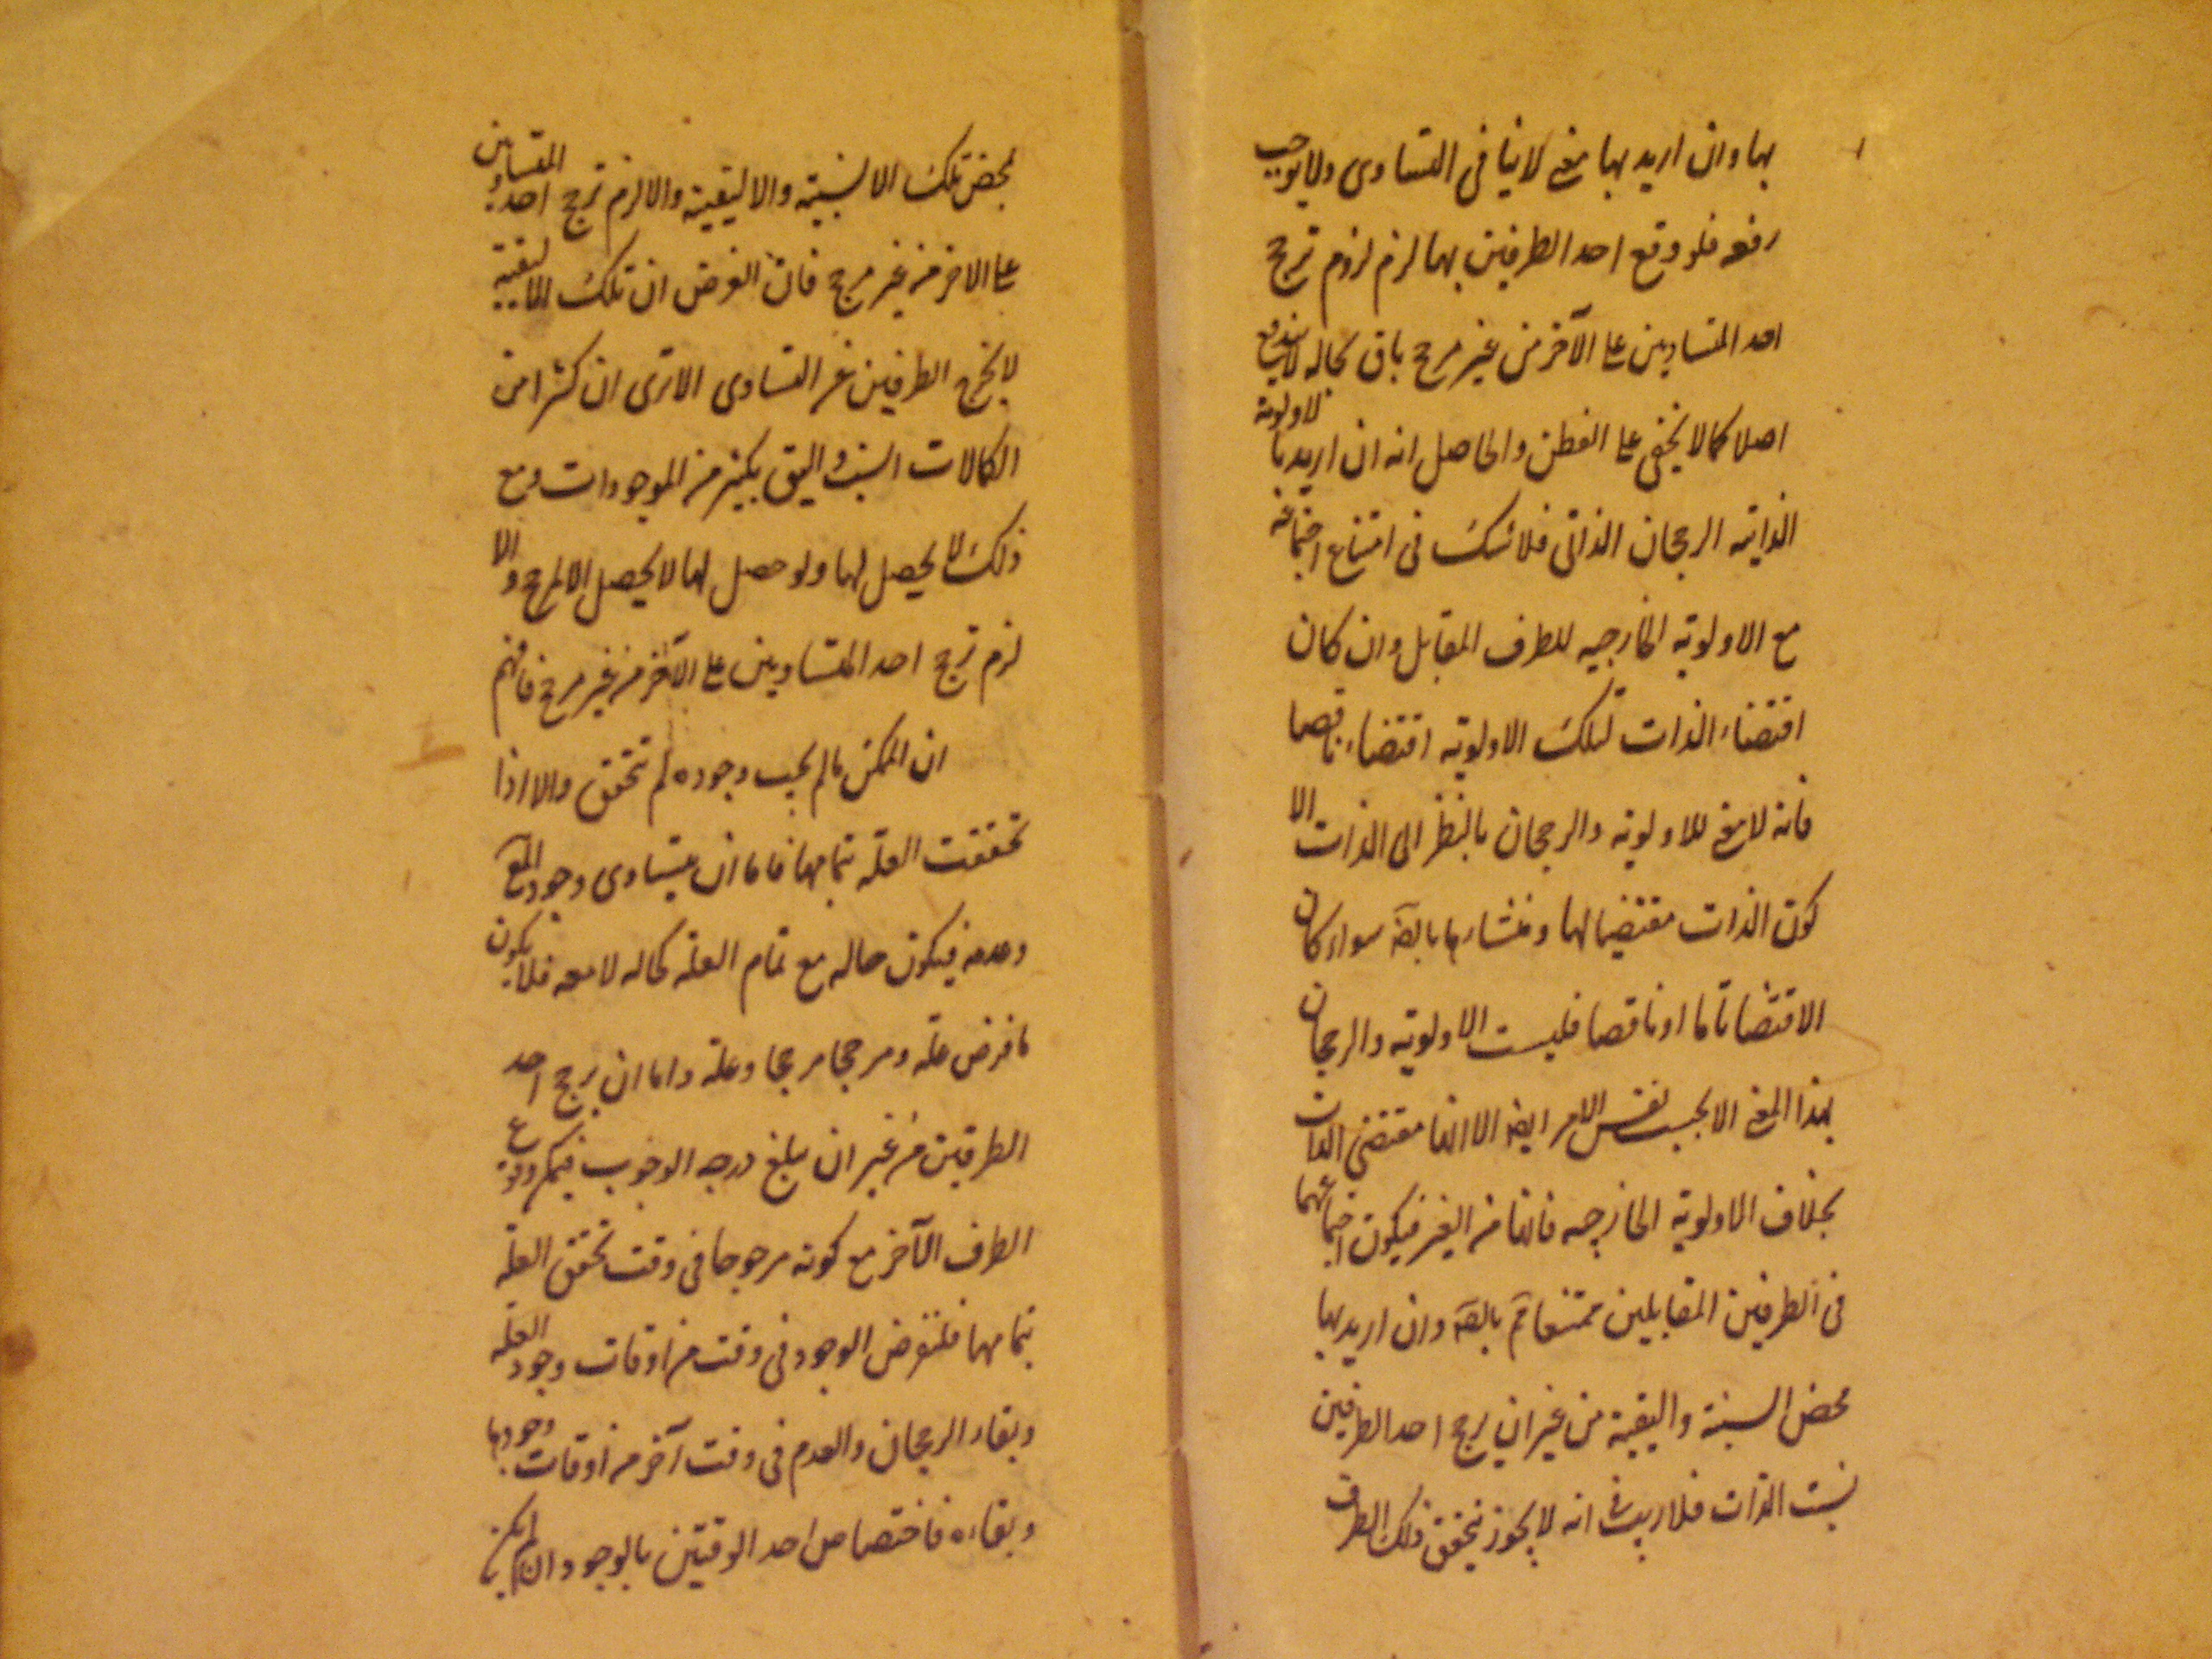 بها وان اريد بها معنى لا ينافى التساوى ولا يوجب
رفعه فلو وقع احد الطرفين بها لزم لزوم ترجح
احد المتساويين على الآخر من غير مرجح باق بحاله لا يندفع
اصلا كما لا يخفى على الفطن والحاصل انه ان اريد بالاولوية
الذاتية الرجحان الذاتى فلا شك فى امتناع اجتماعه
مع الاولوية الخارجيه للطرف المقابل وان كان
اقتضاء الذات لتلك الاولوية اقتضاء ناقصا
فانه لا معنى للاولوية والرجحان بالنظر الى الذات الا
كون الذات مقتضيا لها ومنشاء لها بالجملة سواء كان
الاقتضا تاما او ناقصا فليست الاولوية والرجحان
بهذا المعنى الا بحسب نفس الامر ايضا الا انها مقتضى الذات
بخلاف الاولوية الخارجيه فانها من الغير فيكون اجتماعهما
فى الطرفين المقابلين ممتنعا بالجملة وان اريد بها
محض انسبية واليقية من غير ان يرجح احد الطرفين
بنسبت الذات فلا ريب فى انه لا يجوز تحقق ذلك الطرف
بمحض تلك الانسبية والاليقية والا لزم ترجح احد المتساويين
على الاخر من غير مرجح فان الفرض ان تلك الاليقية
لا يخرج الطرفين عن التساوى الا ترى ان كثيرا من
الكمالات انسب واليق بكثير من الموجودات ومع
ذلك لا يحصل لها ولو حصل لها لا يحصل الا لمرجح والا
لزم ترجح احد المتساويين على الآخر من غير مرجح فافهم
ان الممكن ما لم يجب وجوده لم يتحقق والا اذا
تحققت العلة بتمامها فاما ان يتساوى وجود المع
وعدمه فيكون حاله مع تمام العلة كحاله لا معه فلا يكون
ما فرض علة ومرجحا مرجحا وعلة واما ان يرجح احد
الطرفين من غير ان يبلغ درجه الوجوب فيمكن وقوع
الطرف الآخر مع كونه مرجوحا فى وقت تحقق العلة
بتمامها فلنفرض الوجود فى وقت من اوقات وجود العلة
وبقاء الرجحان والعدم فى وقت آخر من اوقات وجودها
وبقاءه فاختصاص احد الوقتين بالوجود ان لم يكن